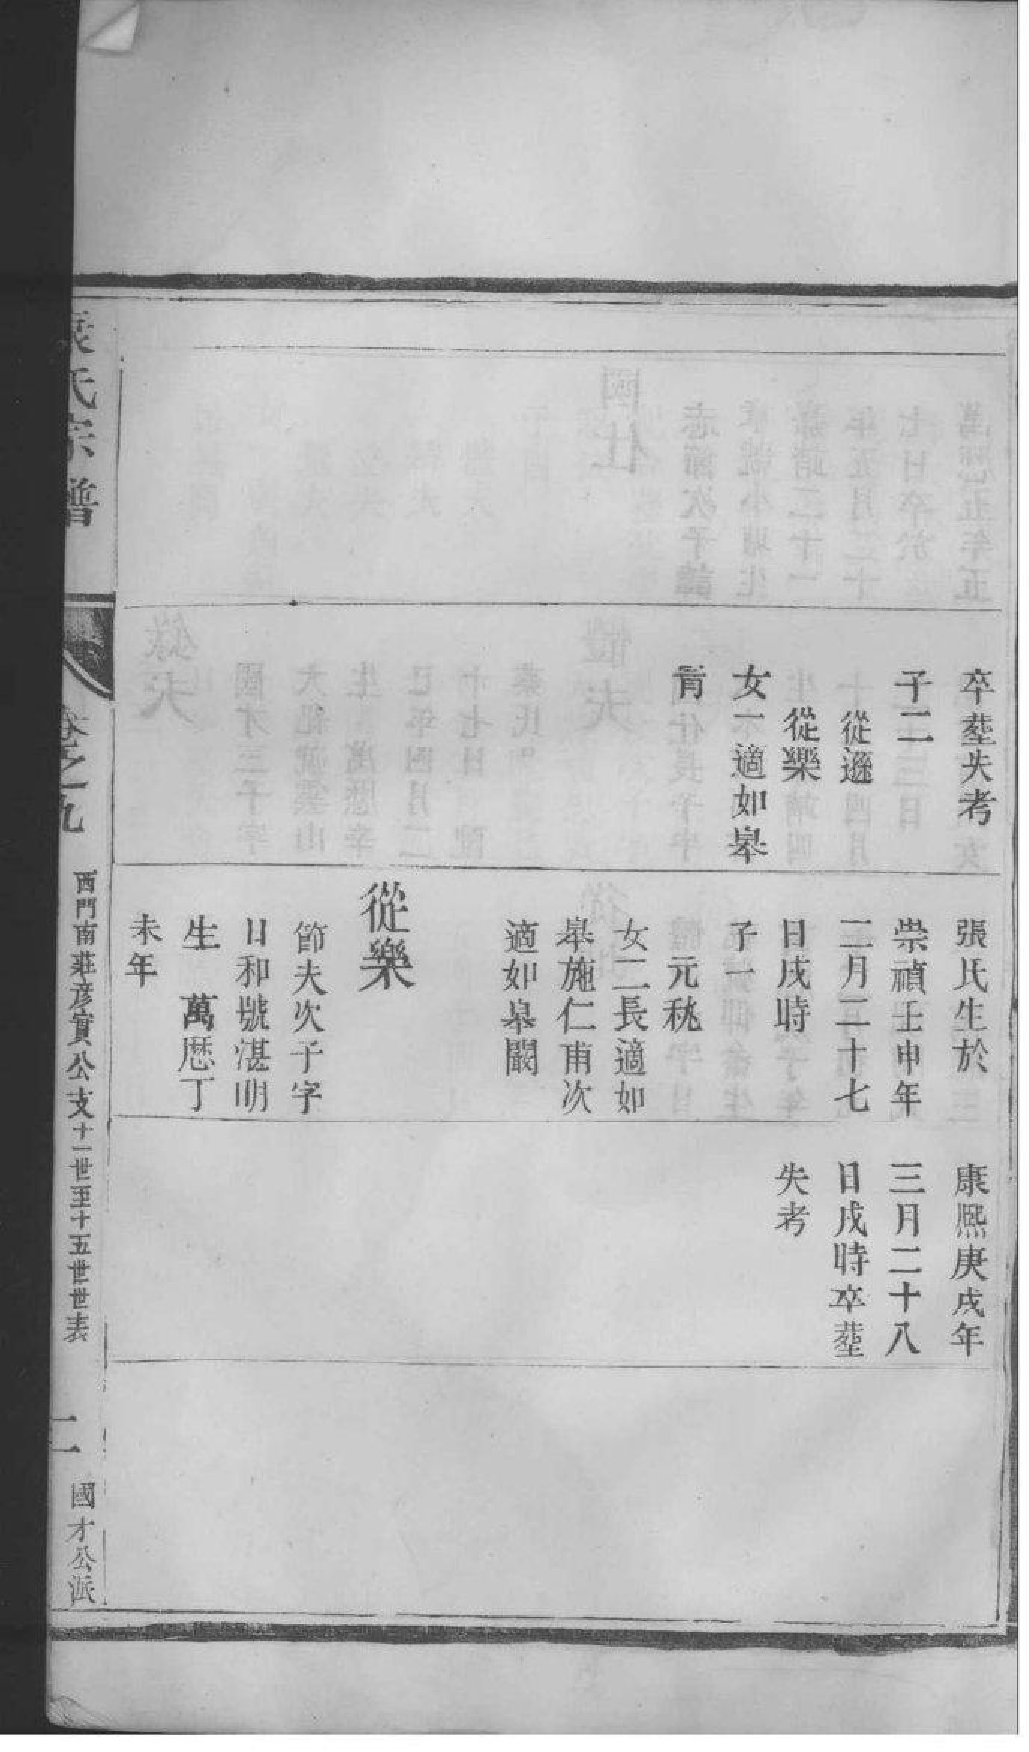 卒塟失考
子二
從遜
從樂
女一適如皋
張氏生於
崇禎壬申年
二月二十七
日戌時
子一
元秋
女二長適如
皋施仁甫次
適如皋闞
從樂
節夫次子字
日和號湛明
生　萬厯丁
未年
康熙庚戌年
三月二十八
日戌時卒塟
失考
袁氏宗譜
卷之九
西門南莊彦實公支十一世至十五世世表
二
國才公派